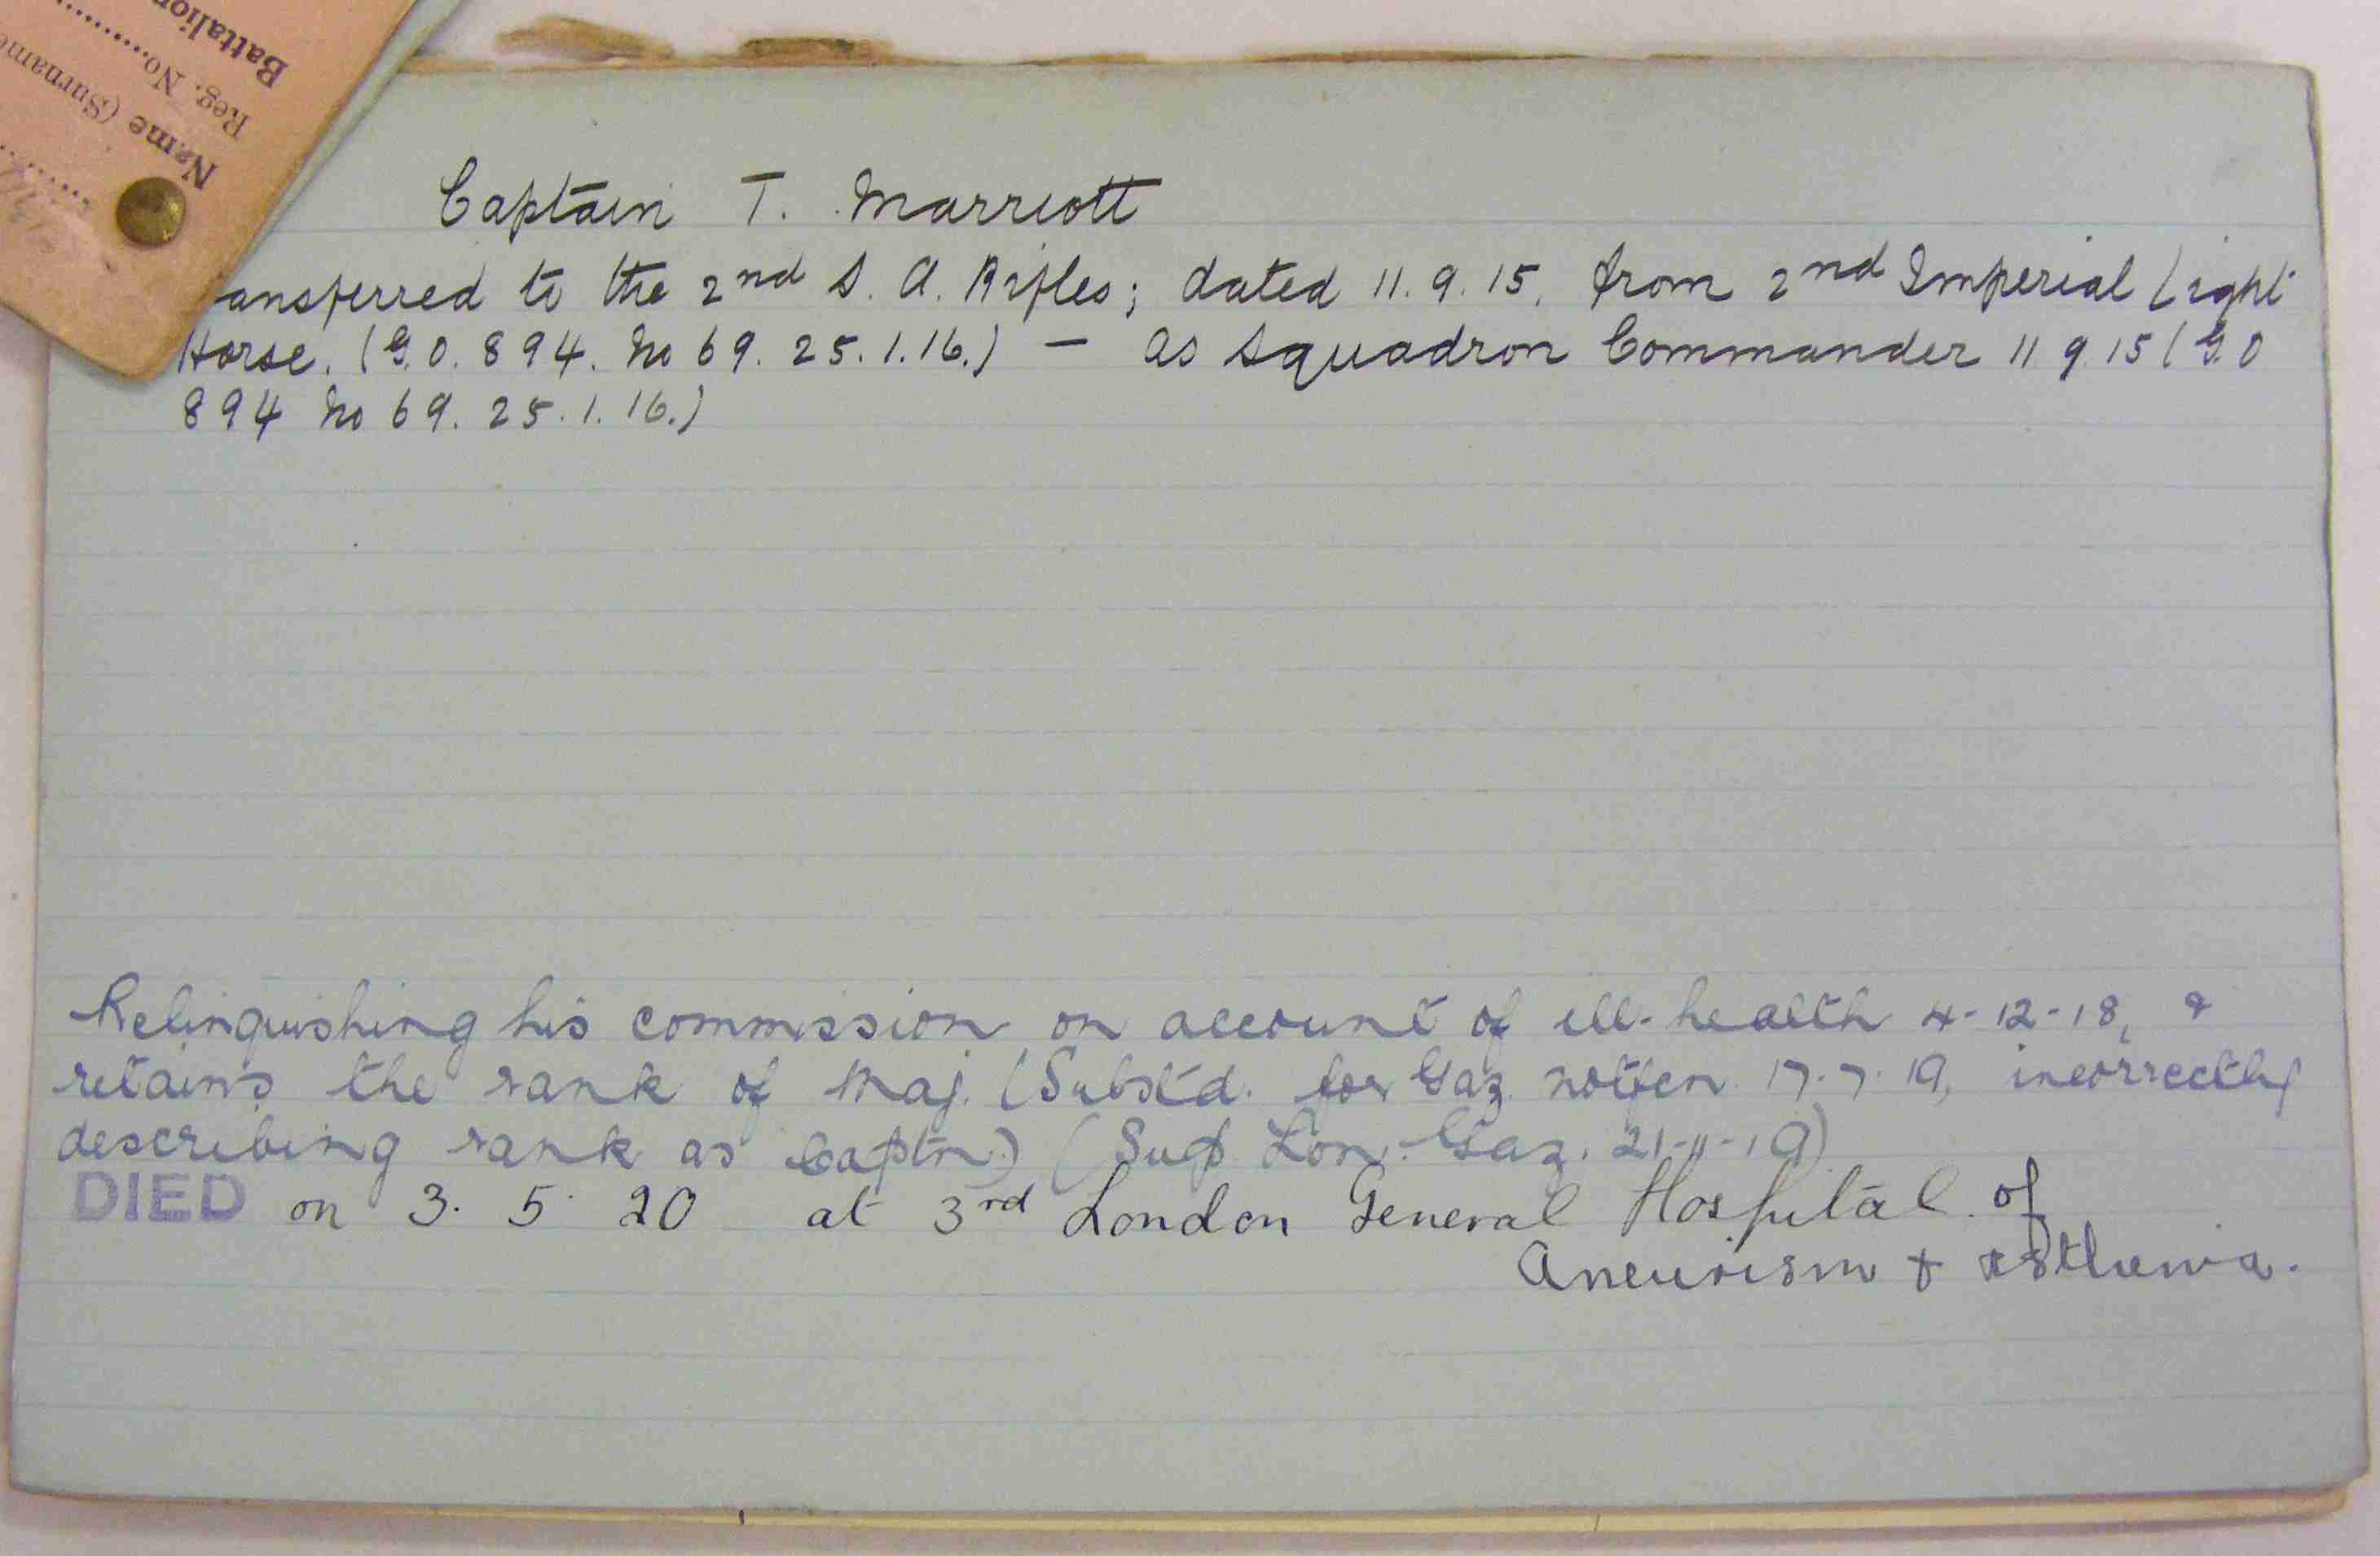 Battalion
Reg. No.
Name (Surname
Captain T. Marriott
ansferred to the 2nd S. A. Rifles; dated 11.9.15. from 2nd Imperial Light
Horse. (G.O. 894. No 69. 25.1.16.) — as Squadron Commander 11 9 15 (G.O
894 No 69. 25.1.16.)
Relinquishing his commission on account of ill-health 4-12-18, &
retains the rank of Maj. (Substd. for Gaz. notfcn 17.7.19, incorrectly
describing rank as Captn.) (Sup Lon. Gaz. 21-11-19)
DIED on 3. 5. 20 at 3rd London General Hospital of
Aneurism + asthma.